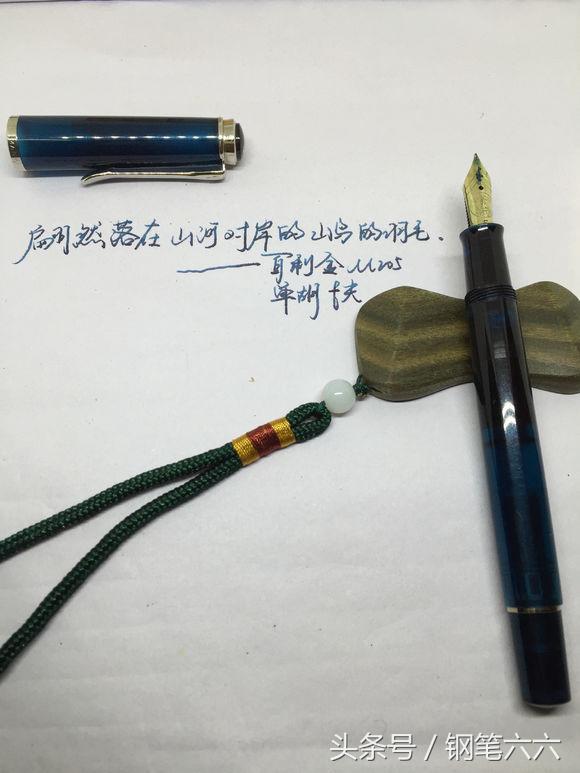 翩然落在山河对岸的山鸟的羽毛.
——百利金M205
头条号 / 钢笔六六